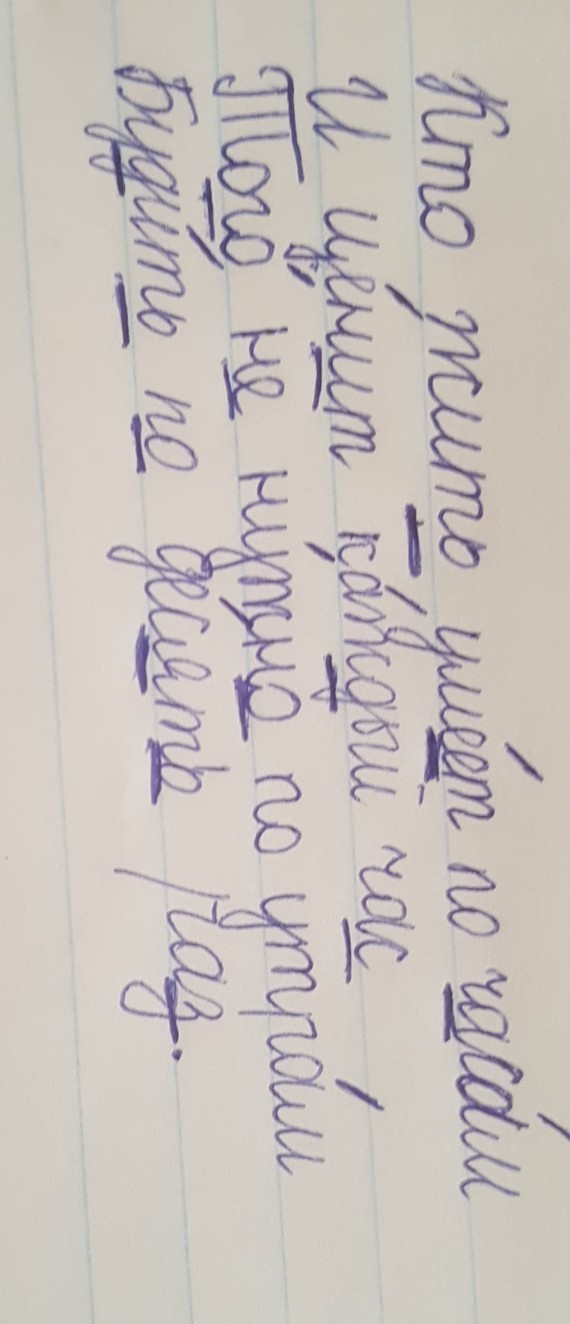 Кто жить умéет по часáм
И цéнит кáждый час
Тогó не нужно по утрáм
Будить по десять раз.